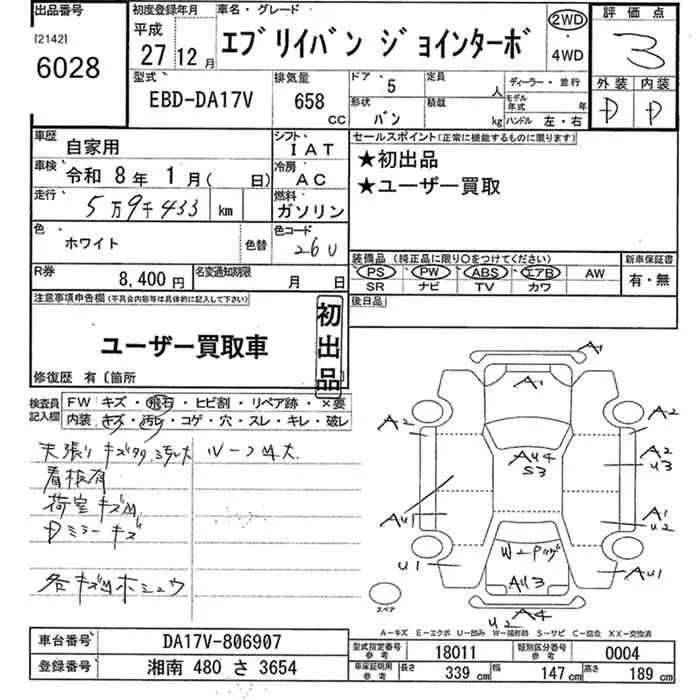 出品番号
[2142]
6028
初度登録年月
平成
27 12月
車名・グレード
エブリイバン ジョインターボ
2WD
・
4WD
評価点
3
外装 内装
D D
型式
EBD-DA17V
排気量
658
CC
ドア 5
形状
バン
定員
人
積載
kg
ディーラー・並行
モデル年式 年
ハンドル 左・右
車歴
自家用
シフト
IAT
車検
令和 8年 1月( 日)
冷房
AC
走行
5万9千433 km
燃料
ガソリン
色
ホワイト
色替
色コード
26U
R券
8,400円
名変通知期限
月 日
セールスポイント(正常に機能するものに限ります)
★初出品
★ユーザー買取
装備品(純正品に限り〇をつけてください)
PS PW ABS エアB AW
SR ナビ TV カワ
新車保証書
有・無
後日品
注意事項申告欄(不具合内容等は具体的に記入して下さい)
ユーザー買取車
初出品
修復歴 有〔箇所
検査員記入欄
FW:キズ・飛石・ヒビ割・リペア跡・×要
内装:キズ・汚レ・コゲ・穴・スレ・キレ・破レ
看板有
荷室キズM
Dミラーキズ
各キズMホシュウ
A
A1
A2
A2
AU4
S3
A2
U3
AU1
A1
U2
U1
AU3
AU1
A4
U2
スペア
A-キズ E-エクボ U-凹み W-補修跡 S-サビ C-腐食 XX-交換済
車台番号
DA17V-806907
登録番号
湘南 480 さ 3654
型式指定番号
参考
18011
類別区分番号
参考
0004
車庫証明用
参考
長さ 339cm 幅 147cm 高さ 189cm